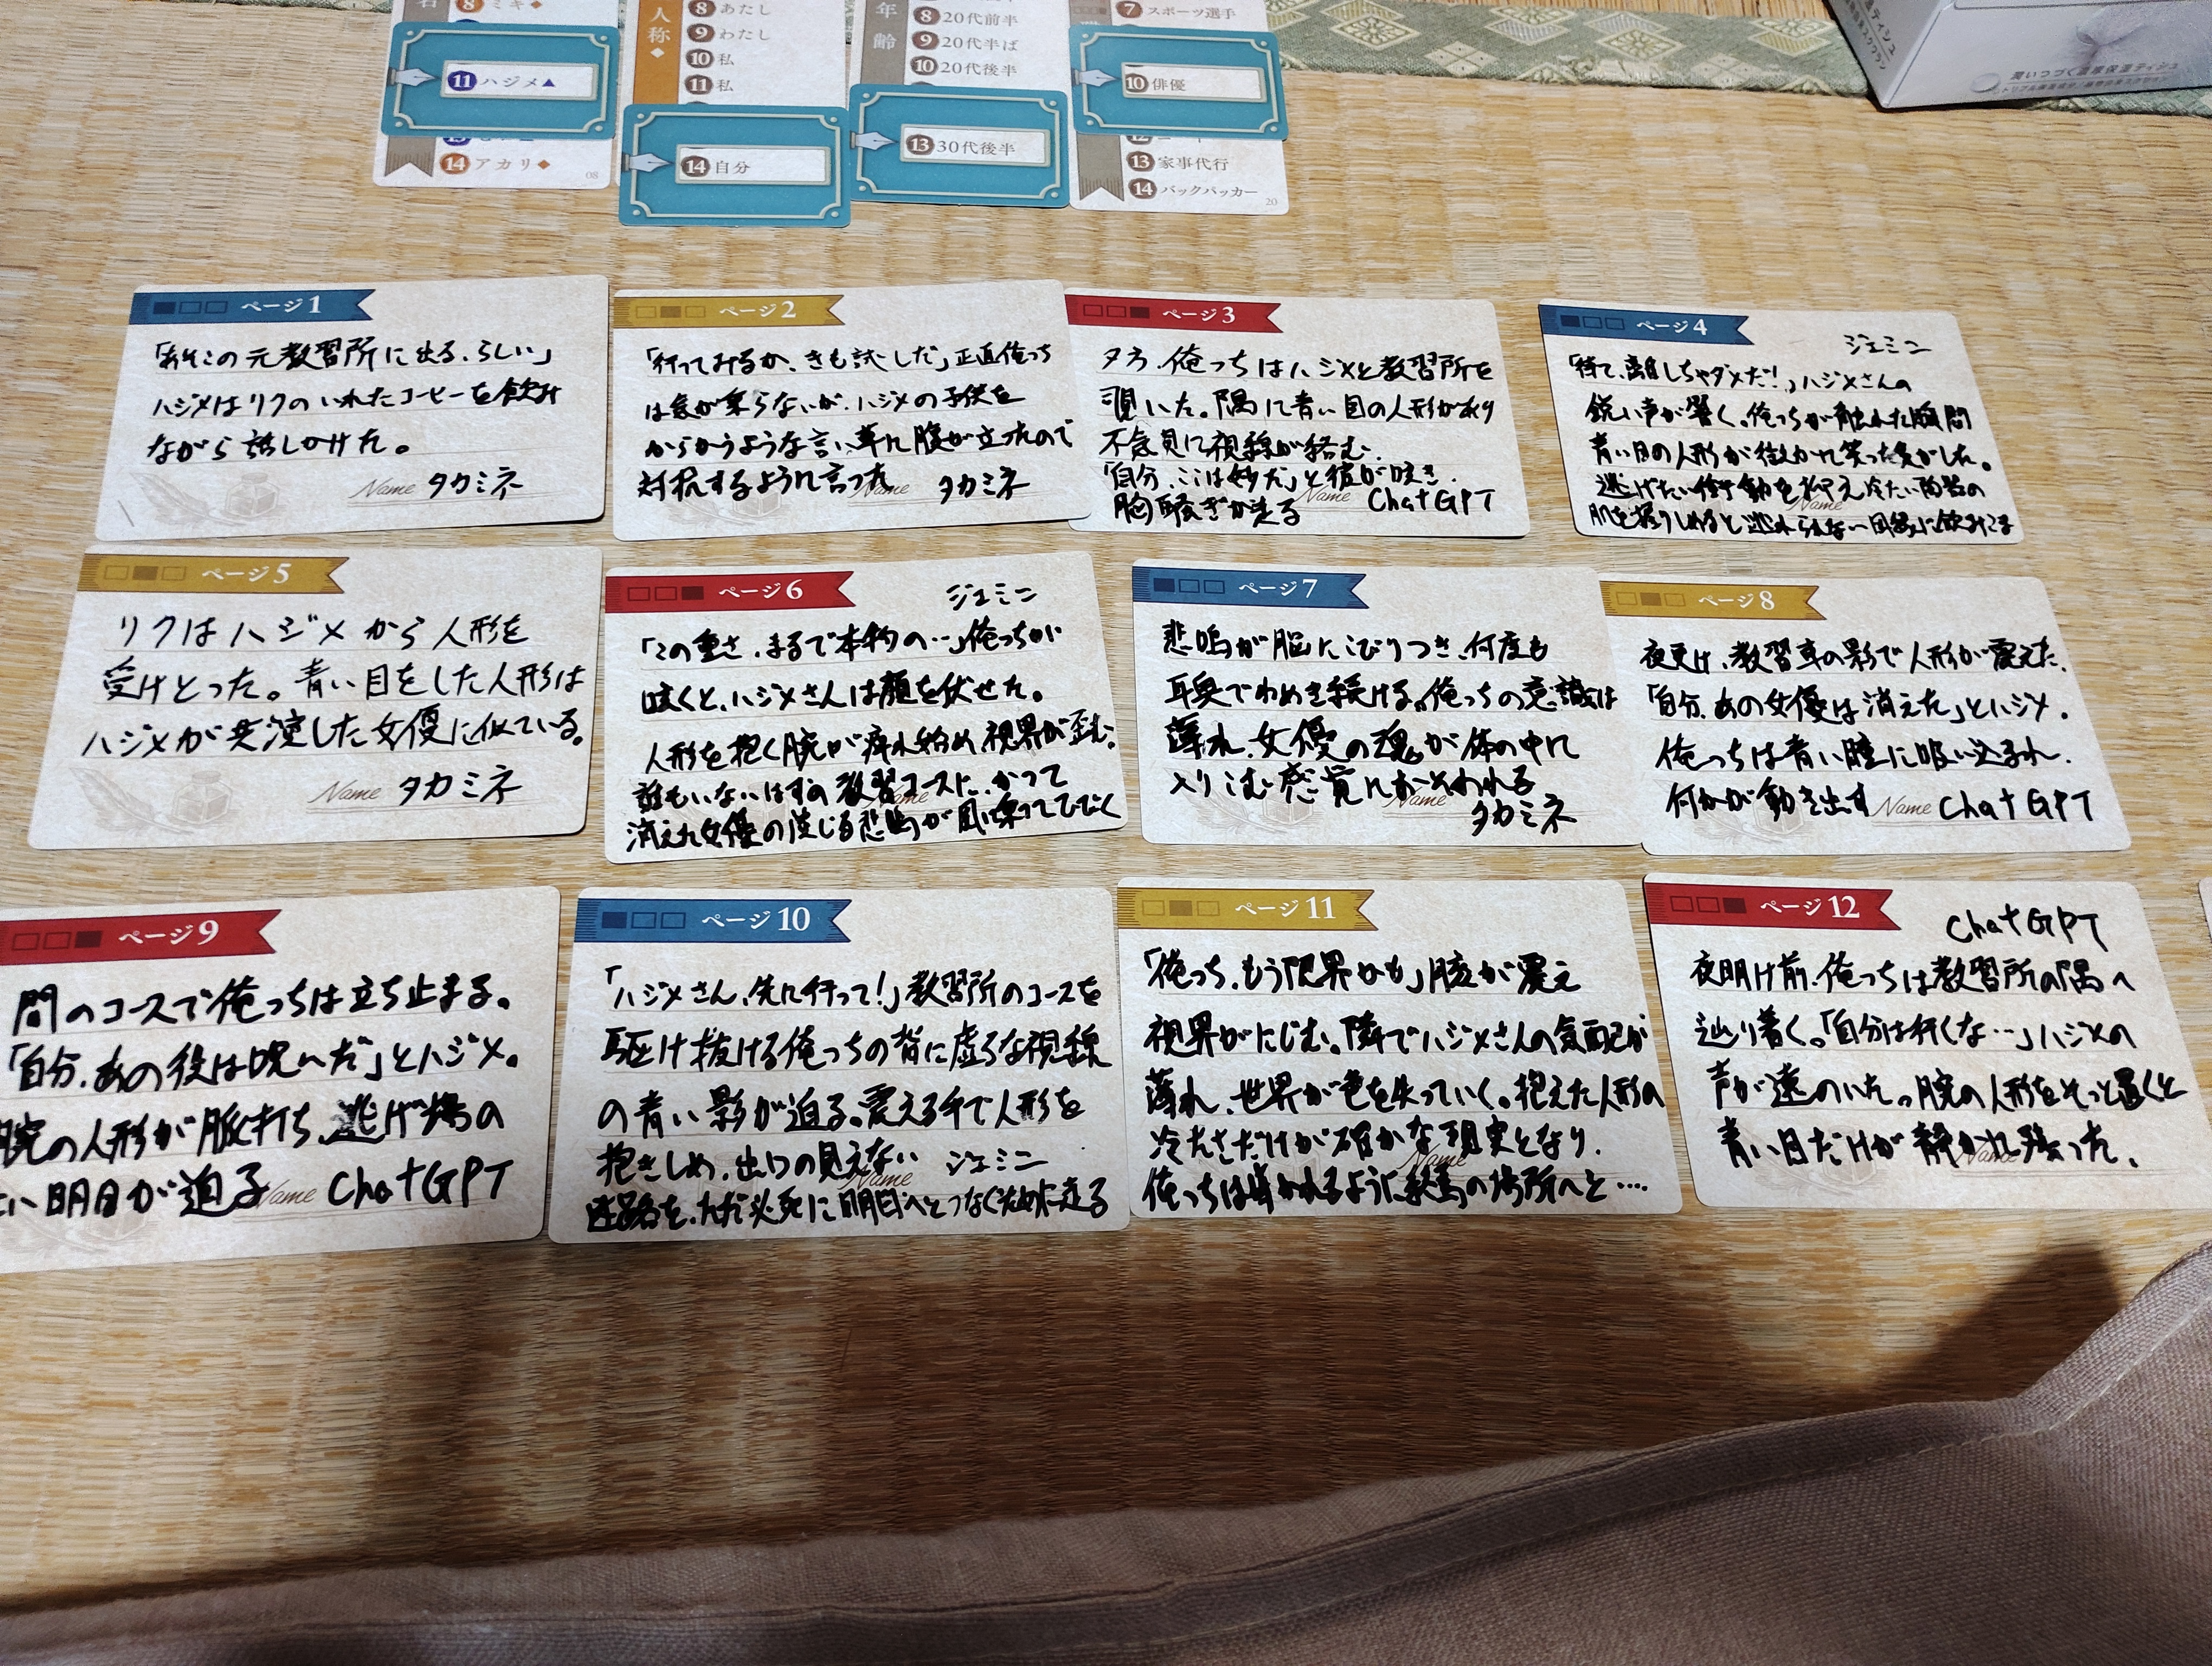 8 ミキ◆
11 ハジメ▲
14 アカリ◆
08
人称◆
8 あたし
9 わたし
10 私
11 私
14 自分
年齢
8 20代前半
9 20代半ば
10 20代後半
13 30代後半
7 スポーツ選手
10 俳優
13 家事代行
14 バックパッカー
20
ページ1
「あそこの元教習所に出る、らしい」
ハジメはリクのいれたコーヒーを飲み
ながら話しかけた。
Name タカミネ
ページ2
「行ってみるか、きも試しだ」正直俺っち
は気が乗らないが、ハジメの子供を
からかうような言い草に腹が立ったので
対抗するように言った
Name タカミネ
ページ3
夕方、俺っちはハジメと教習所を
覗いた。隅に青い目の人形があり
不気見に視線が絡む。
「自分、ここは妙だ」と彼が呟き、
胸騒ぎが走る
Name ChatGPT
ページ4
ジェミニ
「待て、離しちゃダメだ!」ハジメさんの
鋭い声が響く。俺っちが触れた瞬間
青い目の人形が微かに笑った気がした。
逃げたい衝動を抑え冷たい陶器の
肌を握りしめると逃れられない因縁に飲みこま
Name
ページ5
リクはハジメから人形を
受けとった。青い目をした人形は
ハジメが共演した女優に似ている。
Name タカミネ
ページ6
ジェミニ
「この重さ、まるで本物の…」俺っちが
呟くと、ハジメさんは顔を伏せた。
人形を抱く腕が痺れ始め視界が歪む。
誰もいないはずの教習コースに、かつて
消えた女優の演じる悲鳴が風に乗ってひびく
Name
ページ7
悲鳴が脳にこびりつき、何度も
耳奥でわめき続ける。俺っちの意識は
薄れ、女優の魂が体の中に
入りこむ感覚におそわれる
Name
タカミネ
ページ8
夜更け、教習車の影で人形が震えた。
「自分、あの女優は消えた」とハジメ。
俺っちは青い瞳に吸い込まれ、
何かが動き出す
Name ChatGPT
ページ9
闇のコースで俺っちは立ち止まる。
「自分、あの役は呪いだ」とハジメ。
腕の人形が脈打ち、逃げ場の
い明日が迫る
Name ChatGPT
ページ10
「ハジメさん、先に行って!」教習所のコースを
駆け抜ける俺っちの背に虚ろな視線
の青い影が迫る。震える手で人形を
抱きしめ、出口の見えない
Name ジェミニ
迷路を、ただ必死に明日へとつなぐために走る
ページ11
「俺っち、もう限界かも」膝が震え
視界がにじむ。隣でハジメさんの気配が
薄れ、世界が色を失っていく。抱えた人形の
冷たさだけが確かな現実となり、
俺っちは導かれるように終焉の場所へと….
Name
ページ12
ChatGPT
夜明け前、俺っちは教習所の隅へ
辿り着く。「自分は行くな…」ハジメの
声が遠のいた。腕の人形をそっと置くと
青い目だけが静かに残った。
Name